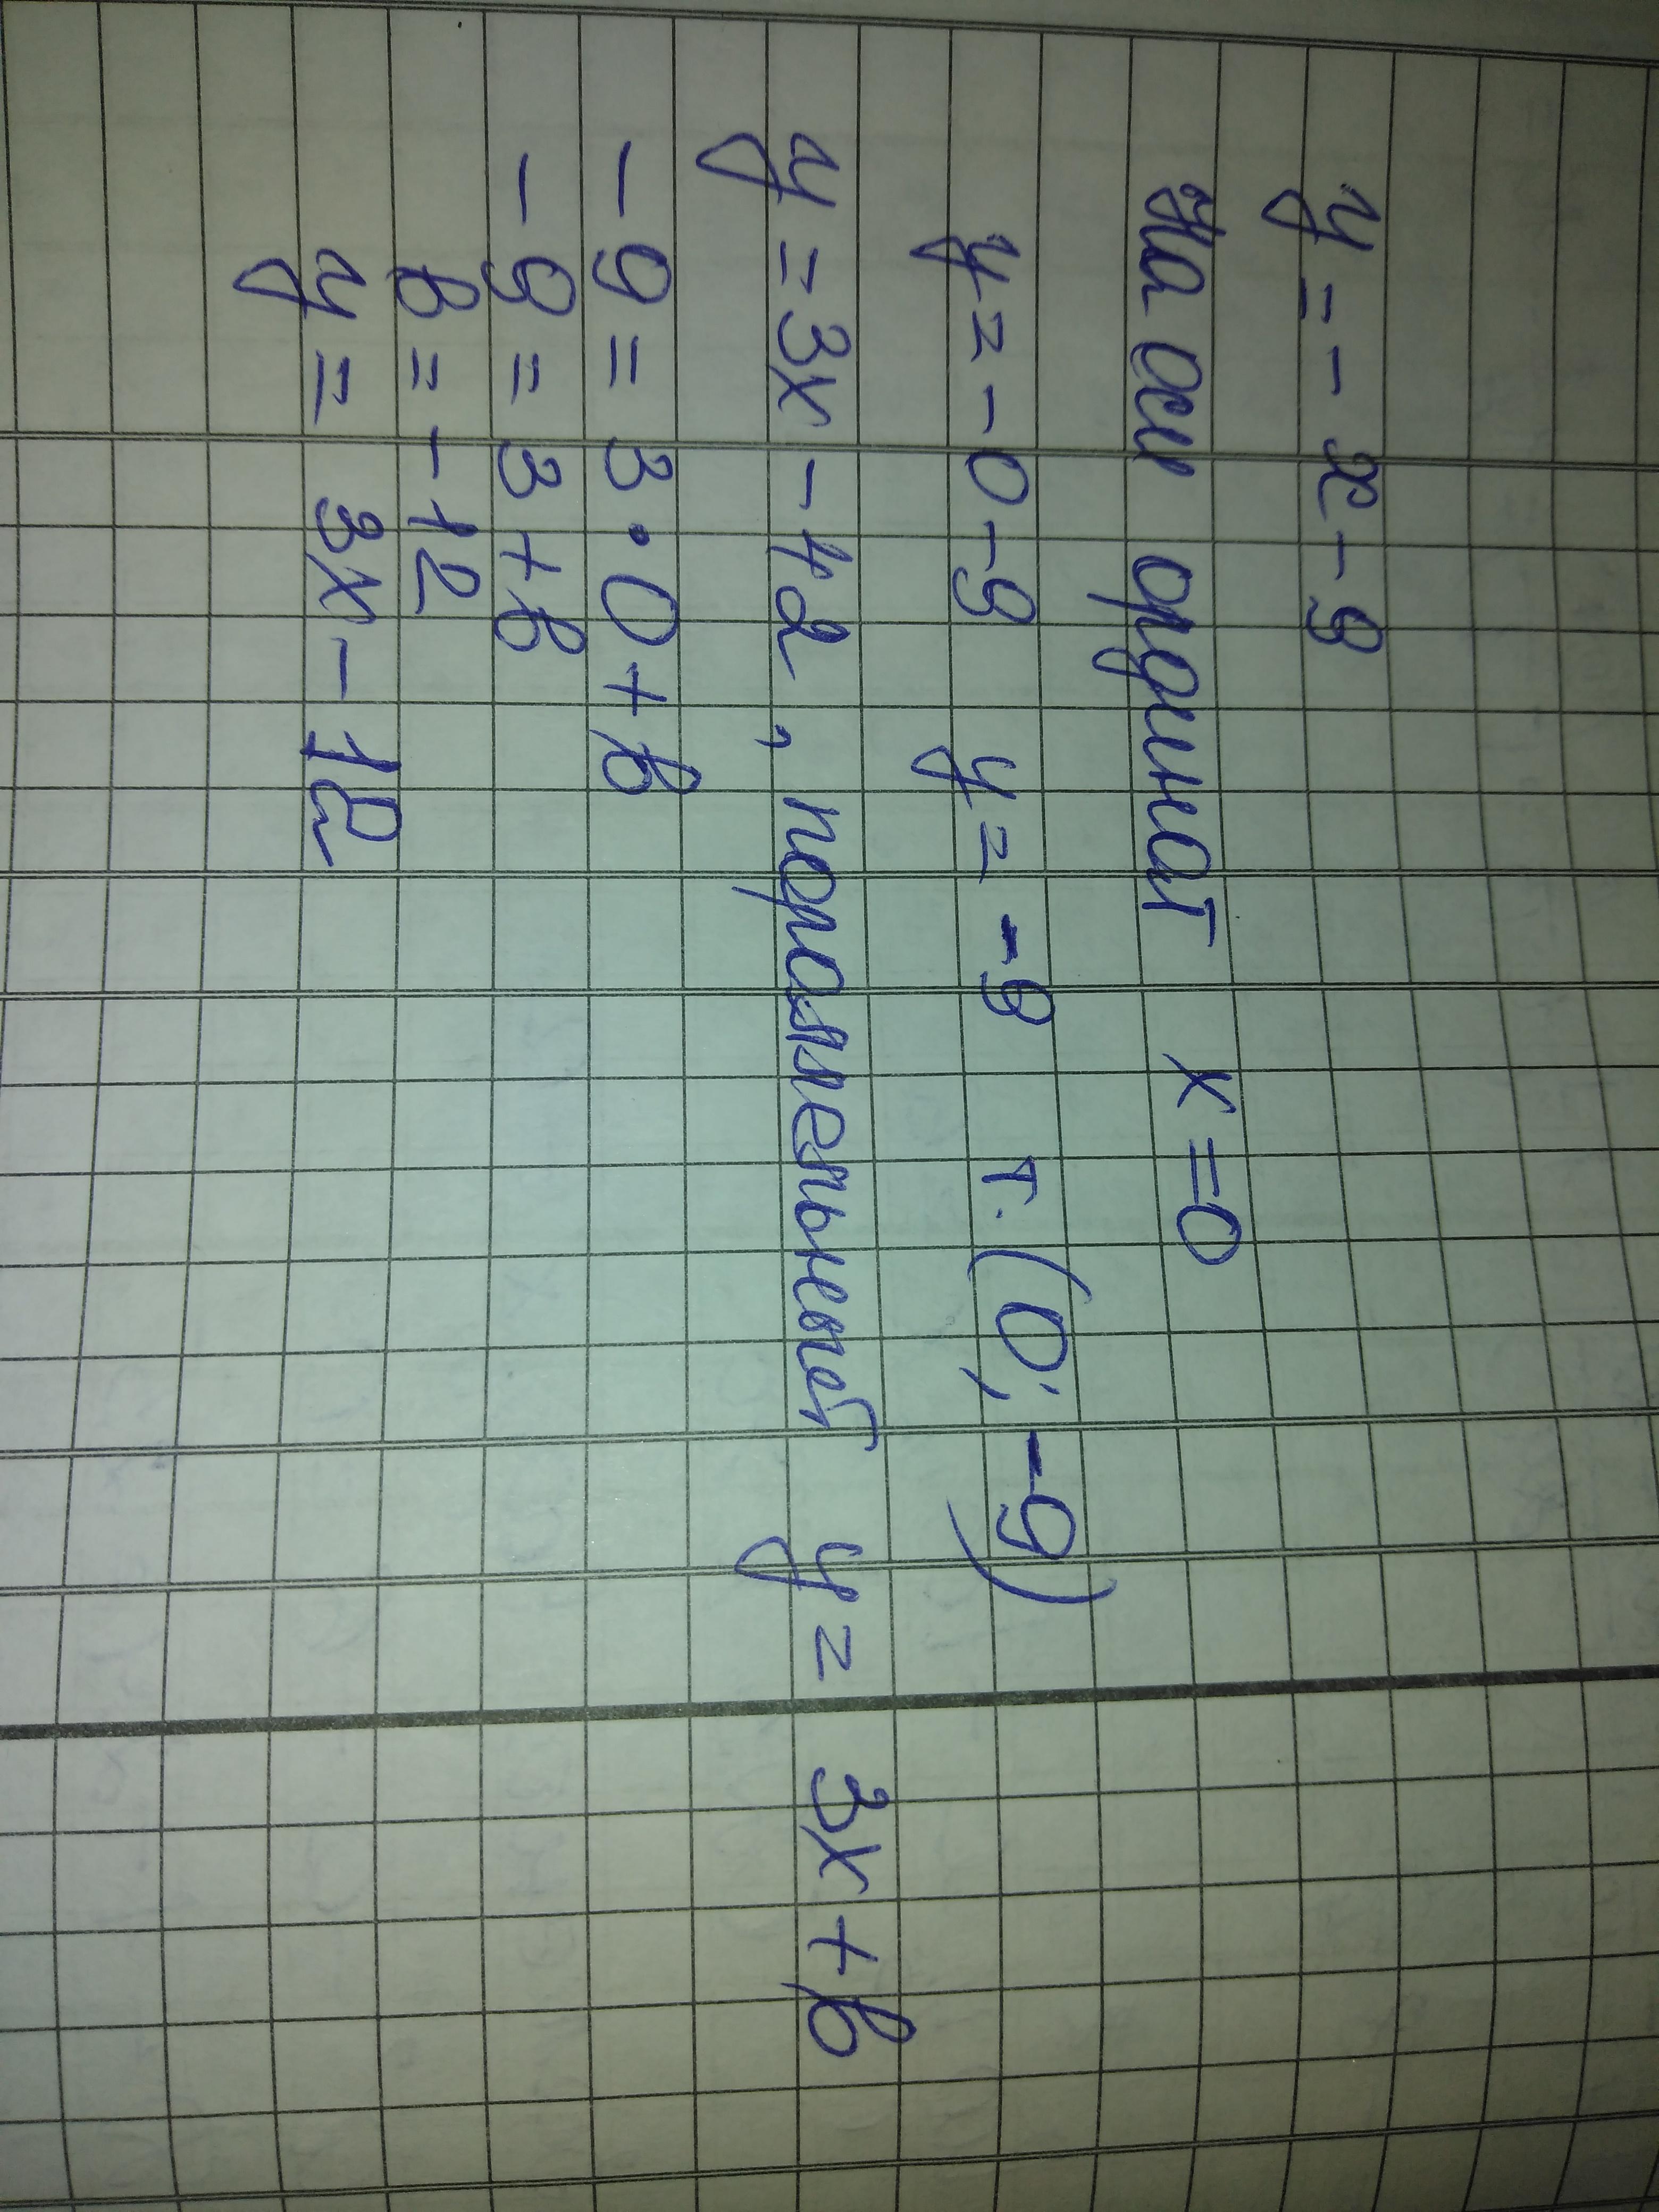 y = - x - 9
На оси ординат x = 0
y = - 0 - 9 y = - 9 т. (0; -9)
y = 3x - 42, параллельный y = 3x + b
- 9 = 3 · 0 + b
- 9 = 3 + b
b = - 12
y = 3x - 12